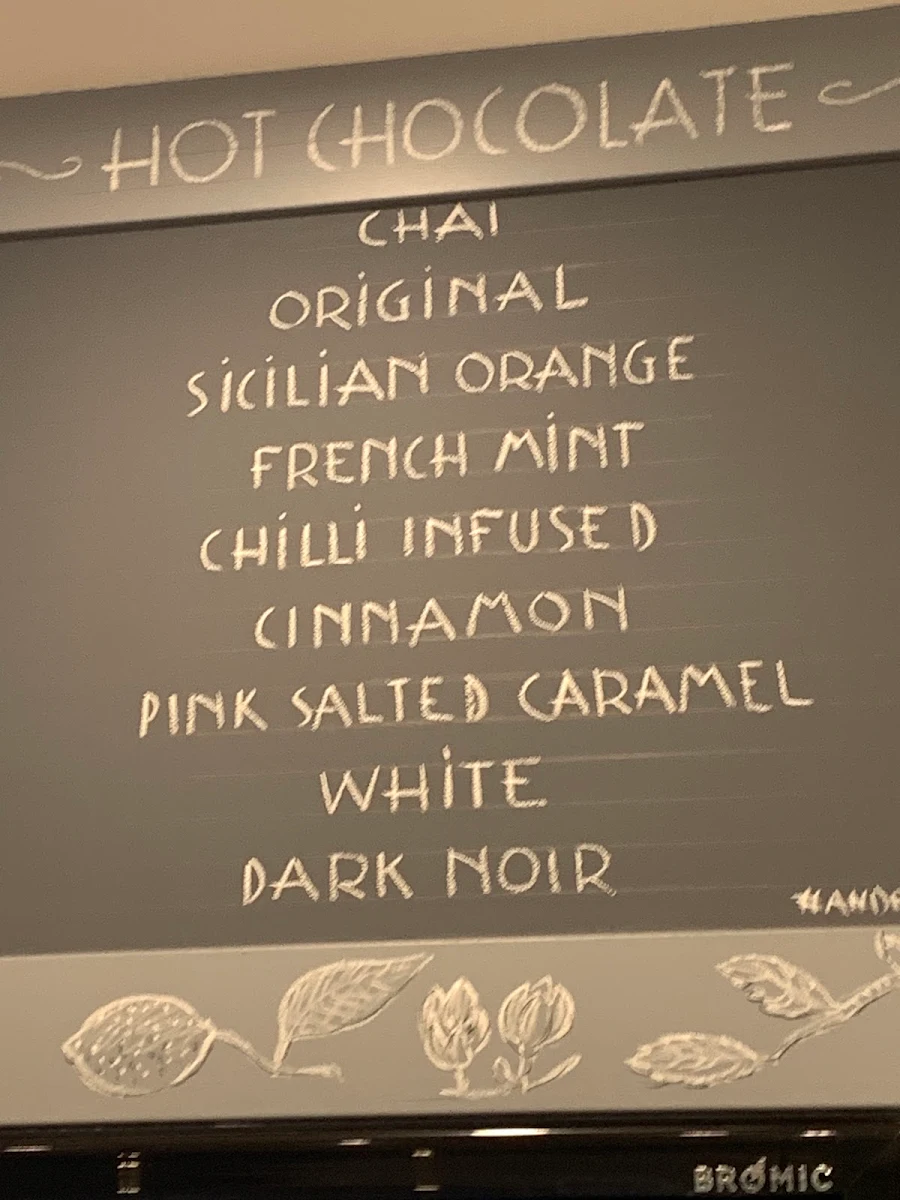 HOT CHOCOLATE
CHAI
ORIGINAL
SICILIAN ORANGE
FRENCH MINT
CHILLI INFUSED
CINNAMON
PINK SALTED CARAMEL
WHITE
DARK NOIR
BROMIC